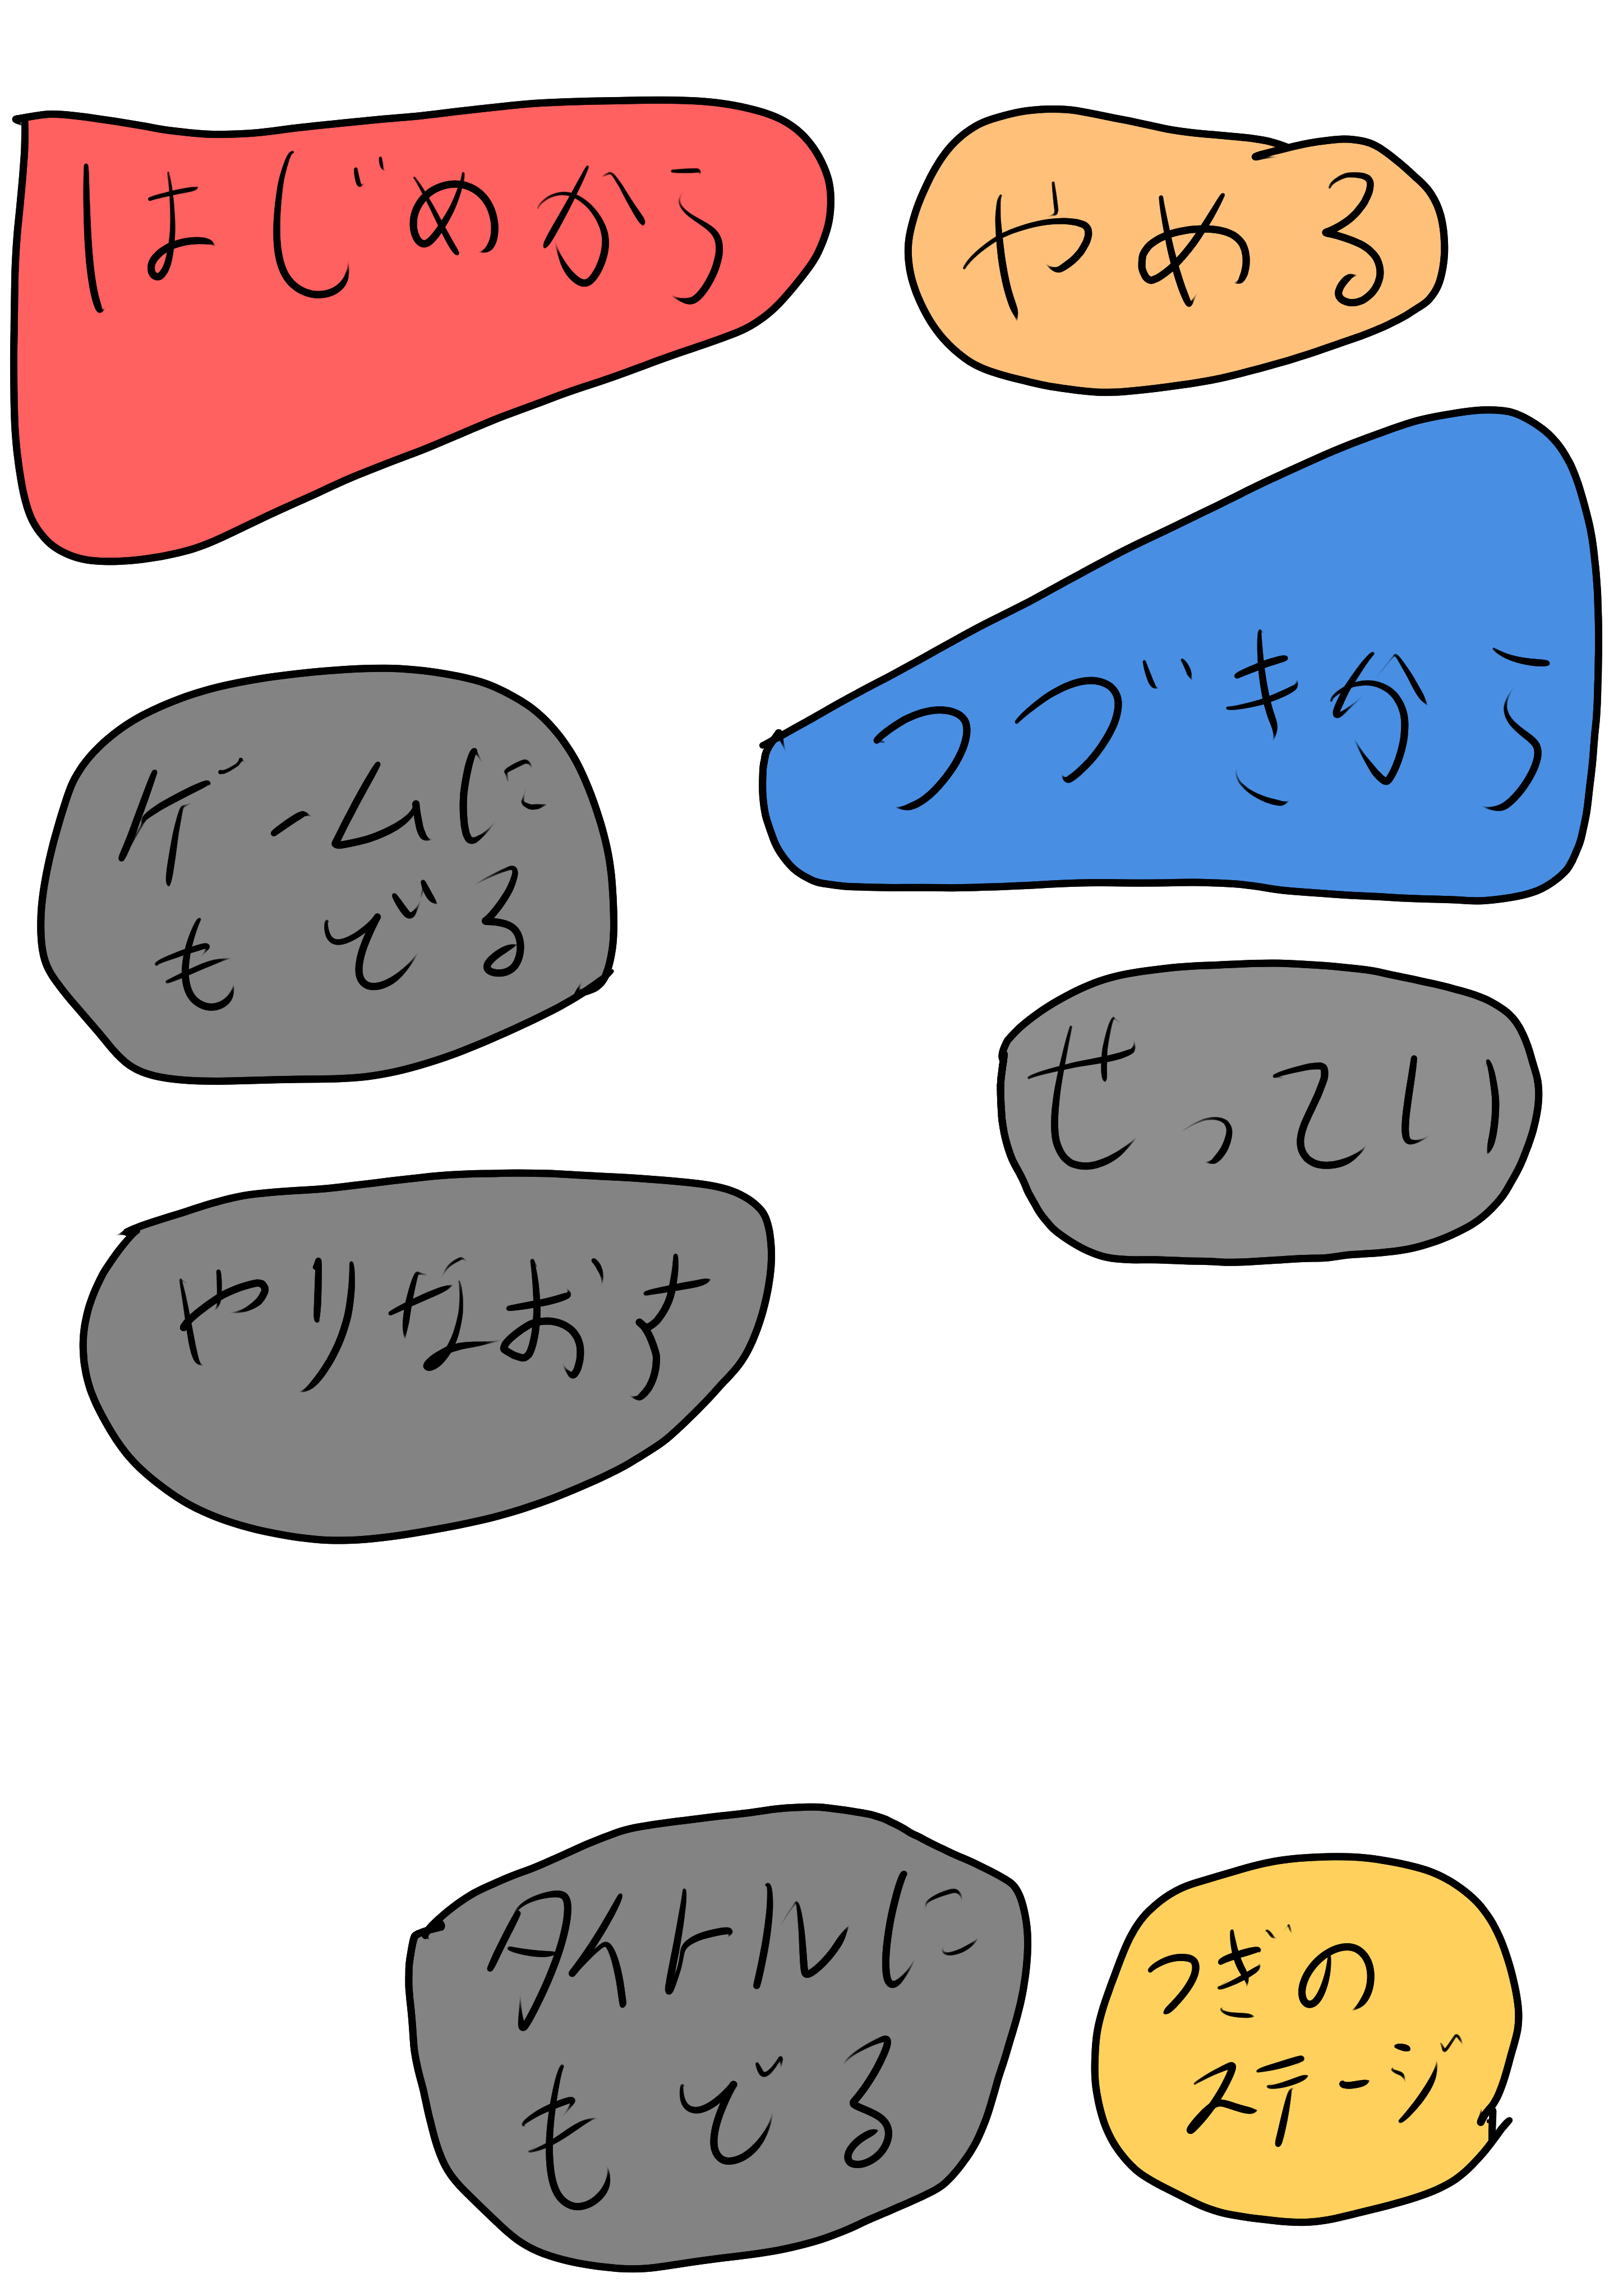 はじめから
やめる
つづきから
ゲームに
もどる
せってい
やりなおす
タイトルに
もどる
つぎの
ステージ